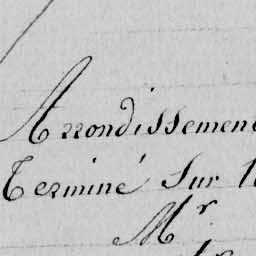 Arrondissemen
Terminé Sur l
Mr